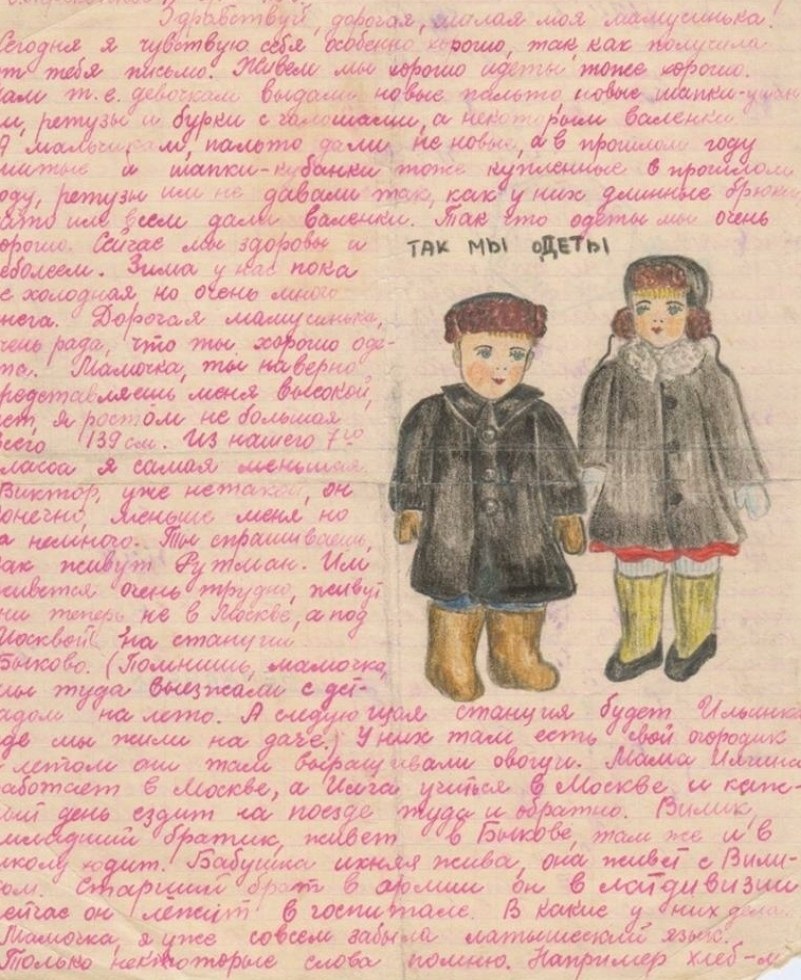 Здравствуй, дорогая, милая моя мамусинька!
Сегодня я чувствую себя особенно хорошо, так как получила
от тебя письмо. Живем мы хорошо одеты тоже хорошо.
нам т.е. девочкам выдали новые пальто, новые шапки-ушан
и, ретузы и бурки с галошами, а некоторым валенки.
А мальчикам, пальто дали не новые, а в прошлом году
шитые и шапки-кубанки тоже купленные в прошлом
году, ретузы им не давали так, как у них длинные брюки
зато им всем дали валенки. Так что одеты мы очень
хорошо. Сейчас мы здоровы и
неболеем. Зима у нас пока
не холодная, но очень много
снега. Дорогая мамусинька,
очень рада, что ты хорошо оде-
та. Мамочка, ты наверно
представляешь меня высокой,
нет, я ростом не большая
всего 139 см. Из нашего 7го
класса я самая меньшая.
Виктор, уже нетакой, он
конечно, меньше меня но
на немного. Ты спрашиваешь,
как живут Рутман. Им
живется очень трудно, живут
они теперь не в Москве, а под
Москвой на станции
Быково. (Помнишь, мамочка,
мы туда выезжали с дет-
садом на лето. А следующая станция будет Ильинка
где мы жили на даче.) У них там есть свой огородик
и летом они там выращивали овощи. Мама
работает в Москве, а учиться в Москве и каж-
дый день ездит на поезде туда и обратно. Вилик,
младший братик, живет в Быкове, там же и в
школу ходит. Бабушка ихняя жива, она живет с Вили-
ком. Старший брат в армии он в латдивизии
сейчас он лежит в госпитале. В какие у них дела.
Мамочка, я уже совсем забыла латышский язык.
Только некоторые слова помню. Например хлеб-м
ТАК МЫ ОДЕТЫ